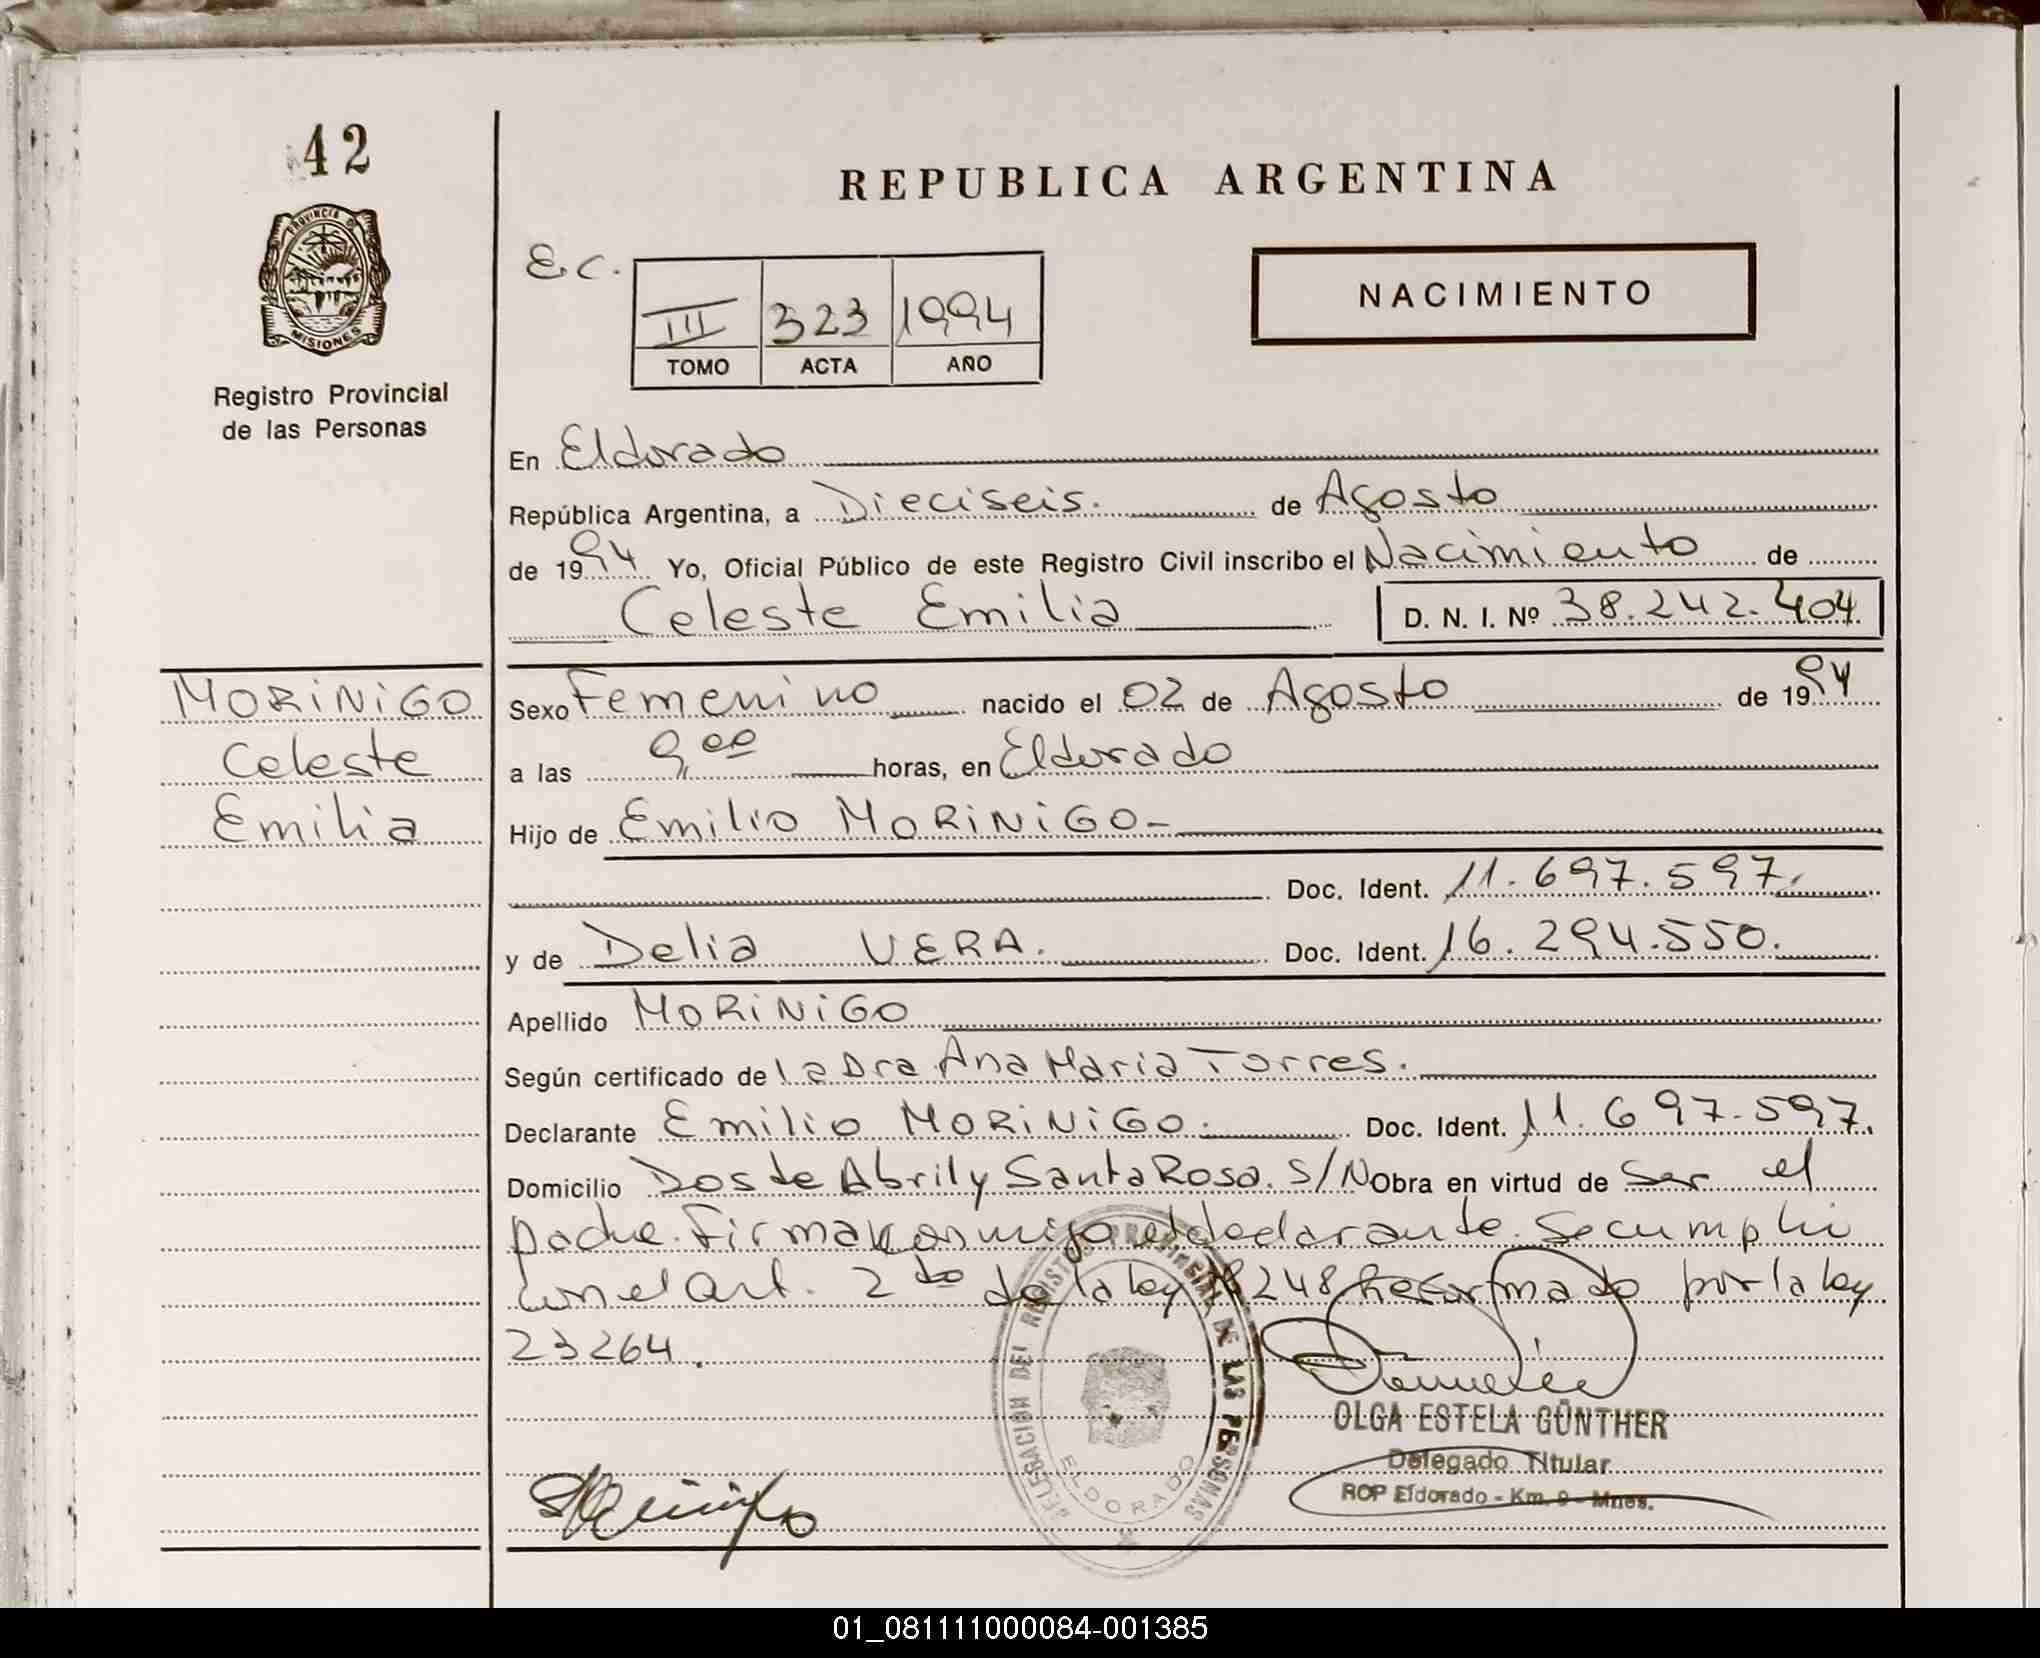 42
PROVINCIA DE
MISIONES
Registro Provincial
de las Personas
REPUBLICA ARGENTINA
E.C.
III 323 1994
TOMO ACTA AÑO
NACIMIENTO
En Eldorado
República Argentina, a Dieciseis. de Agosto
de 1994 Yo, Oficial Público de este Registro Civil inscribo el Nacimiento de
Celeste Emilia D. N. I. Nº 38.242.404
MORINIGO
Celeste
Emilia
Sexo Femenino nacido el 02 de Agosto de 1994
a las 9,00 horas, en Eldorado
Hijo de Emilio MORINIGO-
Doc. Ident. 11.697.597.
y de Delia VERA. Doc. Ident. 16.294.550.
Apellido MORINIGO
Según certificado de la Dra Ana Maria Torres.
Declarante Emilio MORINIGO. Doc. Ident. 11.697.597.
Domicilio Dos de Abril y Santa Rosa. S/N Obra en virtud de Ser el
padre. Firma conmigo el declarante. Se cumplió
con el Art. 2do de la ley 8248 Reformado por la ley
23264.
DELEGACION DEL REGISTRO PROVINCIAL DE LAS PERSONAS
ELDORADO
OLGA ESTELA GÜNTHER
Delegado Titular
ROP Eldorado - Km. 9 - Mnes.
01_081111000084-001385